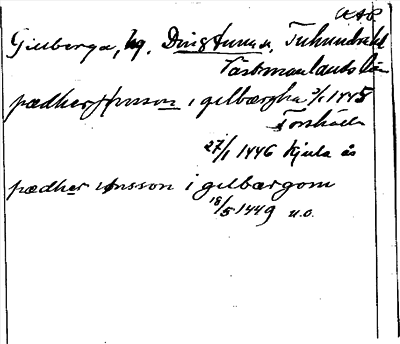 Gillberga, hg, Dingtuna s, Tuhundra hd
Västmanlands län
pædher Jonsson i gilbærgha 3/1 1445
Torshälla
27/1 1446 Kjula ås
pædher Jonsson i gilbærgom
18/5 1449 u.o.